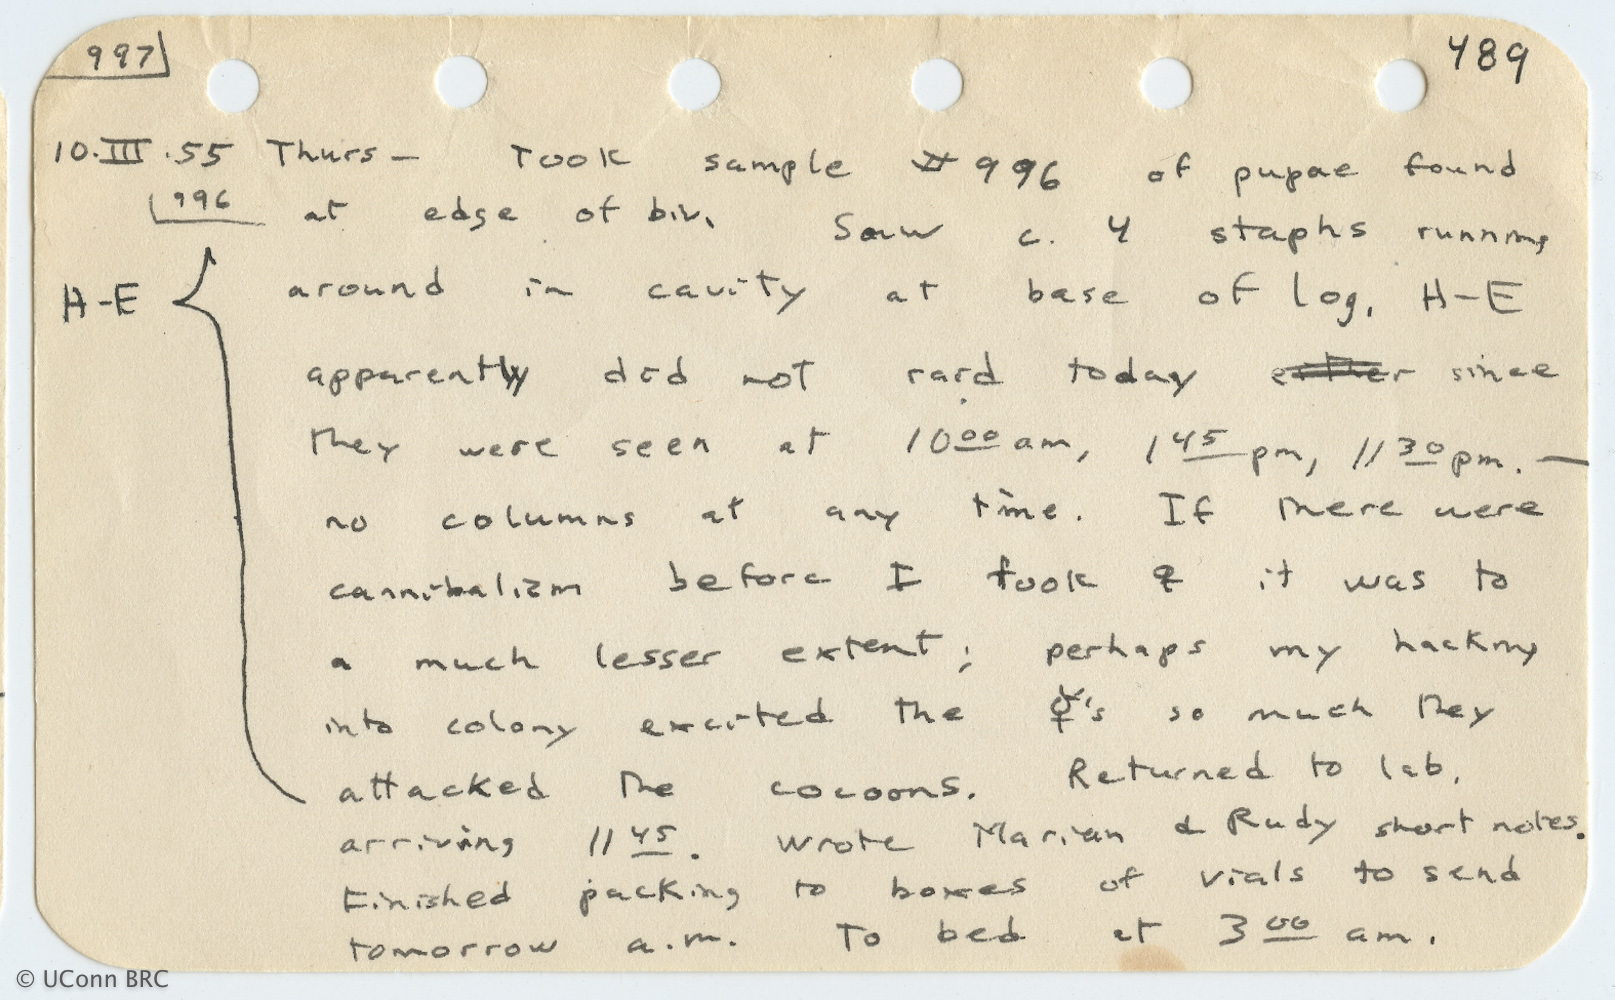 997
489
10.III.55 Thurs — Took sample #996 of pupae found
996
at edge of biv. Saw c. 4 staphs running
H-E
around in cavity at base of log. H-E
apparently did not raid today either since
they were seen at 10 00 am, 1 45 pm, 11 30 pm. —
no columns at any time. If there were
cannibalizm before I took ♀ it was to
a much lesser extent; perhaps my hacking
into colony excited the ☿'s so much they
attacked the cocoons. Returned to lab.
arriving 11 45. Wrote Marian & Rudy short notes.
Finished packing to boxes of vials to send
tomorrow a.m. To bed at 3 00 am.
© UConn BRC